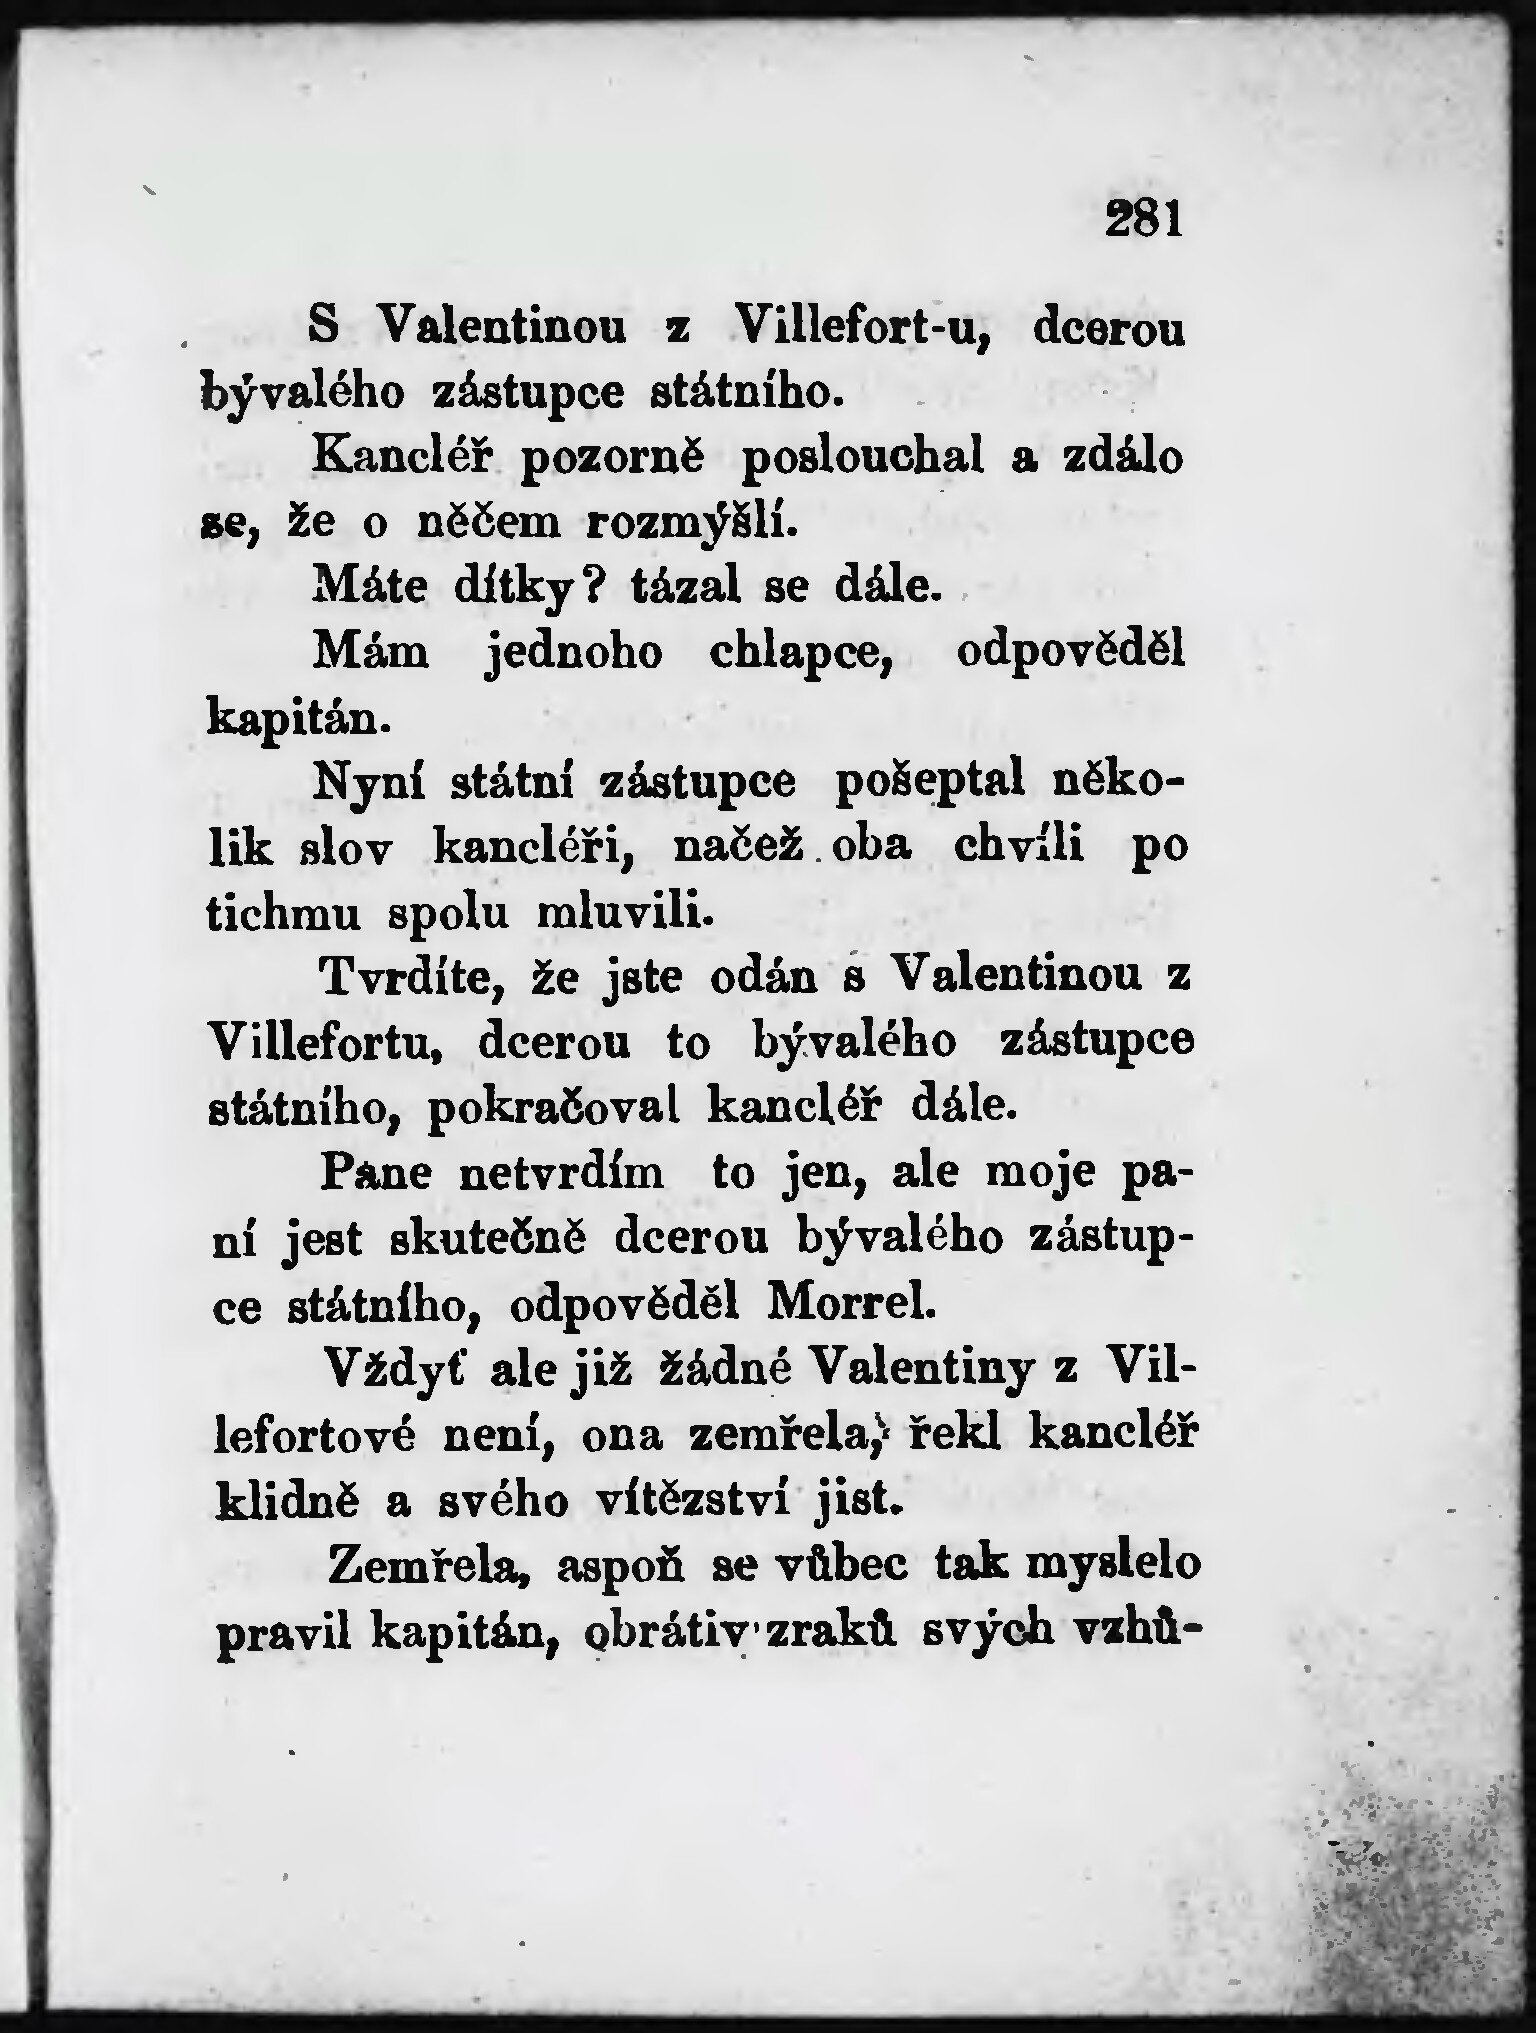 281
S Valentinou z Villefort-u, dcerou
bývalého zástupce státního.
Kancléř pozorně poslouchal a zdálo
se, že o něčem rozmýšlí.
Máte dítky? tázal se dále.
Mám jednoho chlapce, odpověděl
kapitán.
Nyní státní zástupce pošeptal něko-
lik slov kancléři, načež oba chvíli po
tichmu spolu mluvili.
Tvrdíte, že jste odán s Valentinou z
Villefortu, dcerou to bývalého zástupce
státního, pokračoval kancléř dále.
Pane netvrdím to jen, ale moje pa-
ní jest skutečně dcerou bývalého zástup-
ce státního, odpověděl Morrel.
Vždyť ale již žádné Valentiny z Vil-
lefortové není, ona zemřela, řekl kancléř
klidně a svého vítězství jist.
Zemřela, aspoň se vůbec tak myslelo
pravil kapitán, obrátiv zraků svých vzhů-